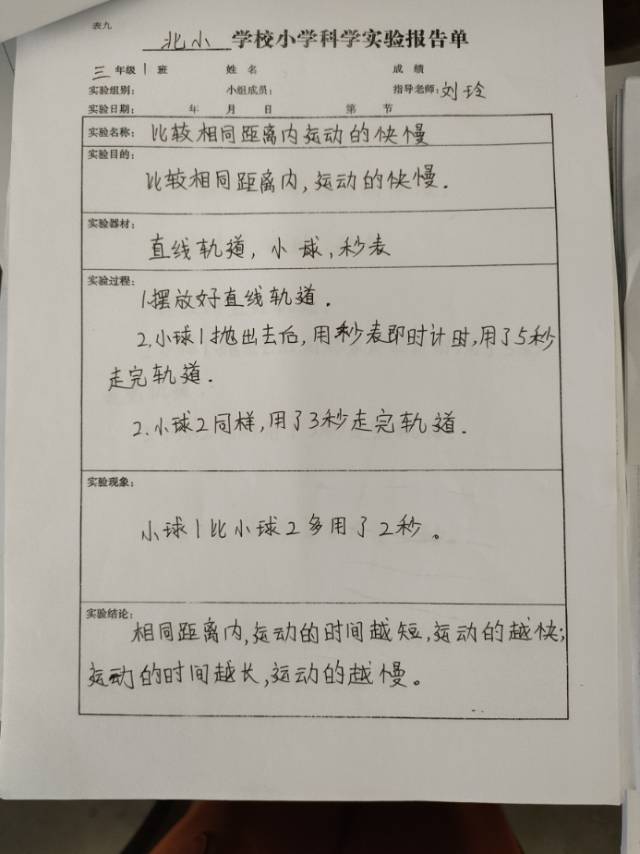 表九
北小 学校小学科学实验报告单
三 年级 1 班 姓 名 成 绩
实验组别： 小组成员： 指导老师：刘玲
实验日期： 年 月 日 第 节
实验名称：比较相同距离内运动的快慢
实验目的：
比较相同距离内，运动的快慢．
实验器材：
直线轨道，小球，秒表
实验过程：
1.摆放好直线轨道．
2.小球1抛出去后，用秒表即时计时，用了5秒
走完轨道．
2.小球2同样，用了3秒走完轨道．
实验现象：
小球1比小球2多用了2秒。
实验结论：
相同距离内，运动的时间越短，运动的越快；
运动的时间越长，运动的越慢。